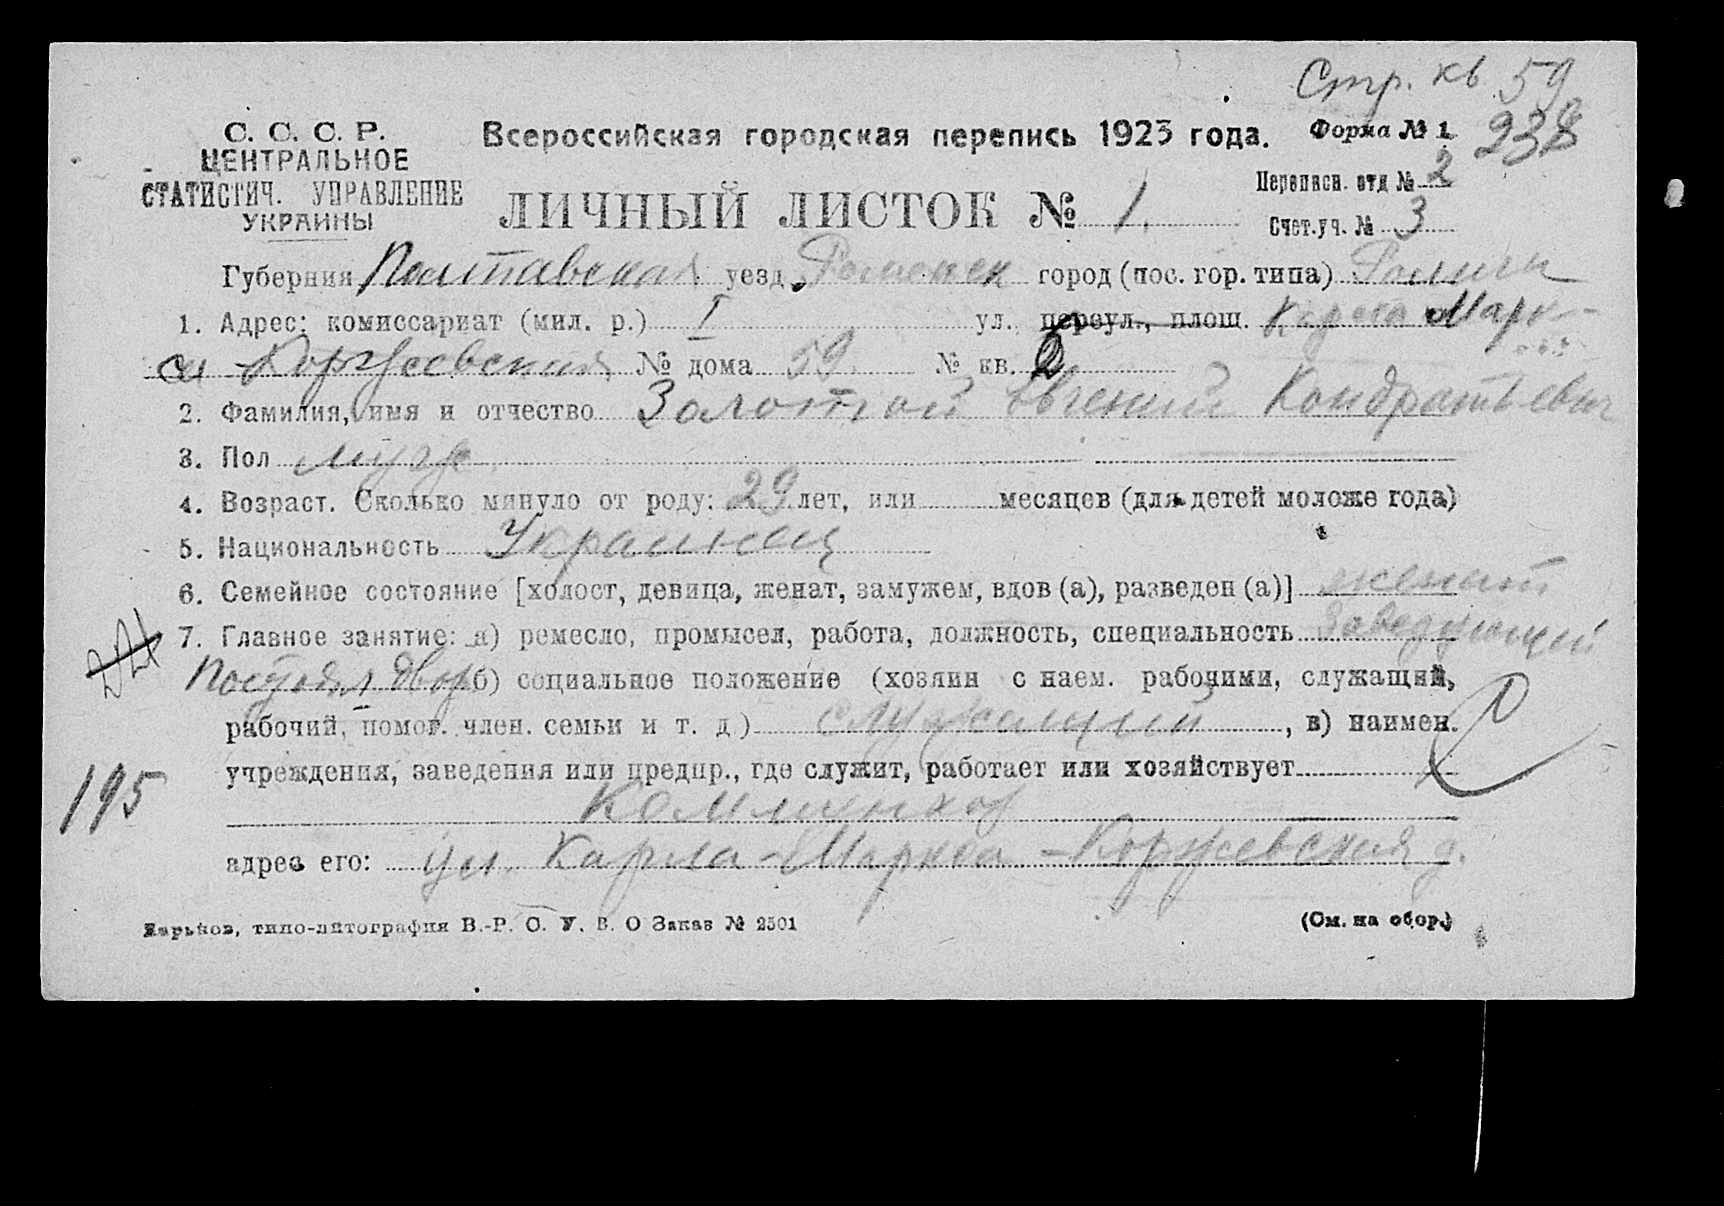 Стр. кв. 59
238
С. С. С. Р.
ЦЕНТРАЛЬНОЕ
СТАТИСТИЧ. УПРАВЛЕНИЕ
УКРАИНЫ
Всероссийская городская перепись 1923 года.
Форма № 1
Переписн. отд № 2
ЛИЧНЫЙ ЛИСТОК № 1.
Счет.уч. № 3
Губерния Полтавская уезд Роменск город (пос. гор. типа) Ромны
1. Адрес: комиссариат (мил. р.) I ул. переул., площ. Карла Марк-
са Коржевская № дома 59. № кв. 2
2. Фамилия, имя и отчество Золотой Евгений Кондратьевич
3. Пол муж.
4. Возраст. Сколько минуло от роду: 29 лет, или месяцев (для детей моложе года)
5. Национальность Украинец
6. Семейное состояние [холост, девица, женат, замужем, вдов (а), разведен (а)] женат
7. Главное занятие: а) ремесло, промысел, работа, должность, специальность Заведующий
двор б) социальное положение (хозяин с наем. рабочими, служащий,
рабочий, помог. член. семьи и т. д) служащий, в) наимен.
учреждения, заведения или предпр., где служит, работает или хозяйствует
195
адрес его: ул. Карла-Маркса-Коржевская д.
Харьков, типо-литография В.-Р. С. У. В. О Заказ № 2501
(См. на обор.)